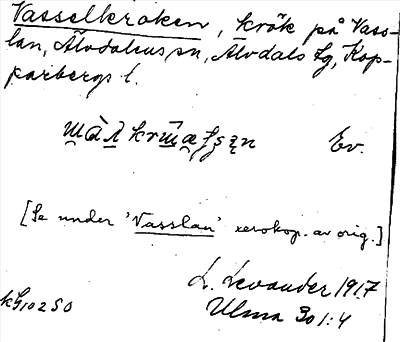 Vasselkroken, krök på Vass-
lan, Älvdalens sn, Älvdals tg, Kop-
parbergs l.
Ev.
[Se under 'Vasslan' xerokop. av orig.]
L. Levander 1917
Ulma 301:4